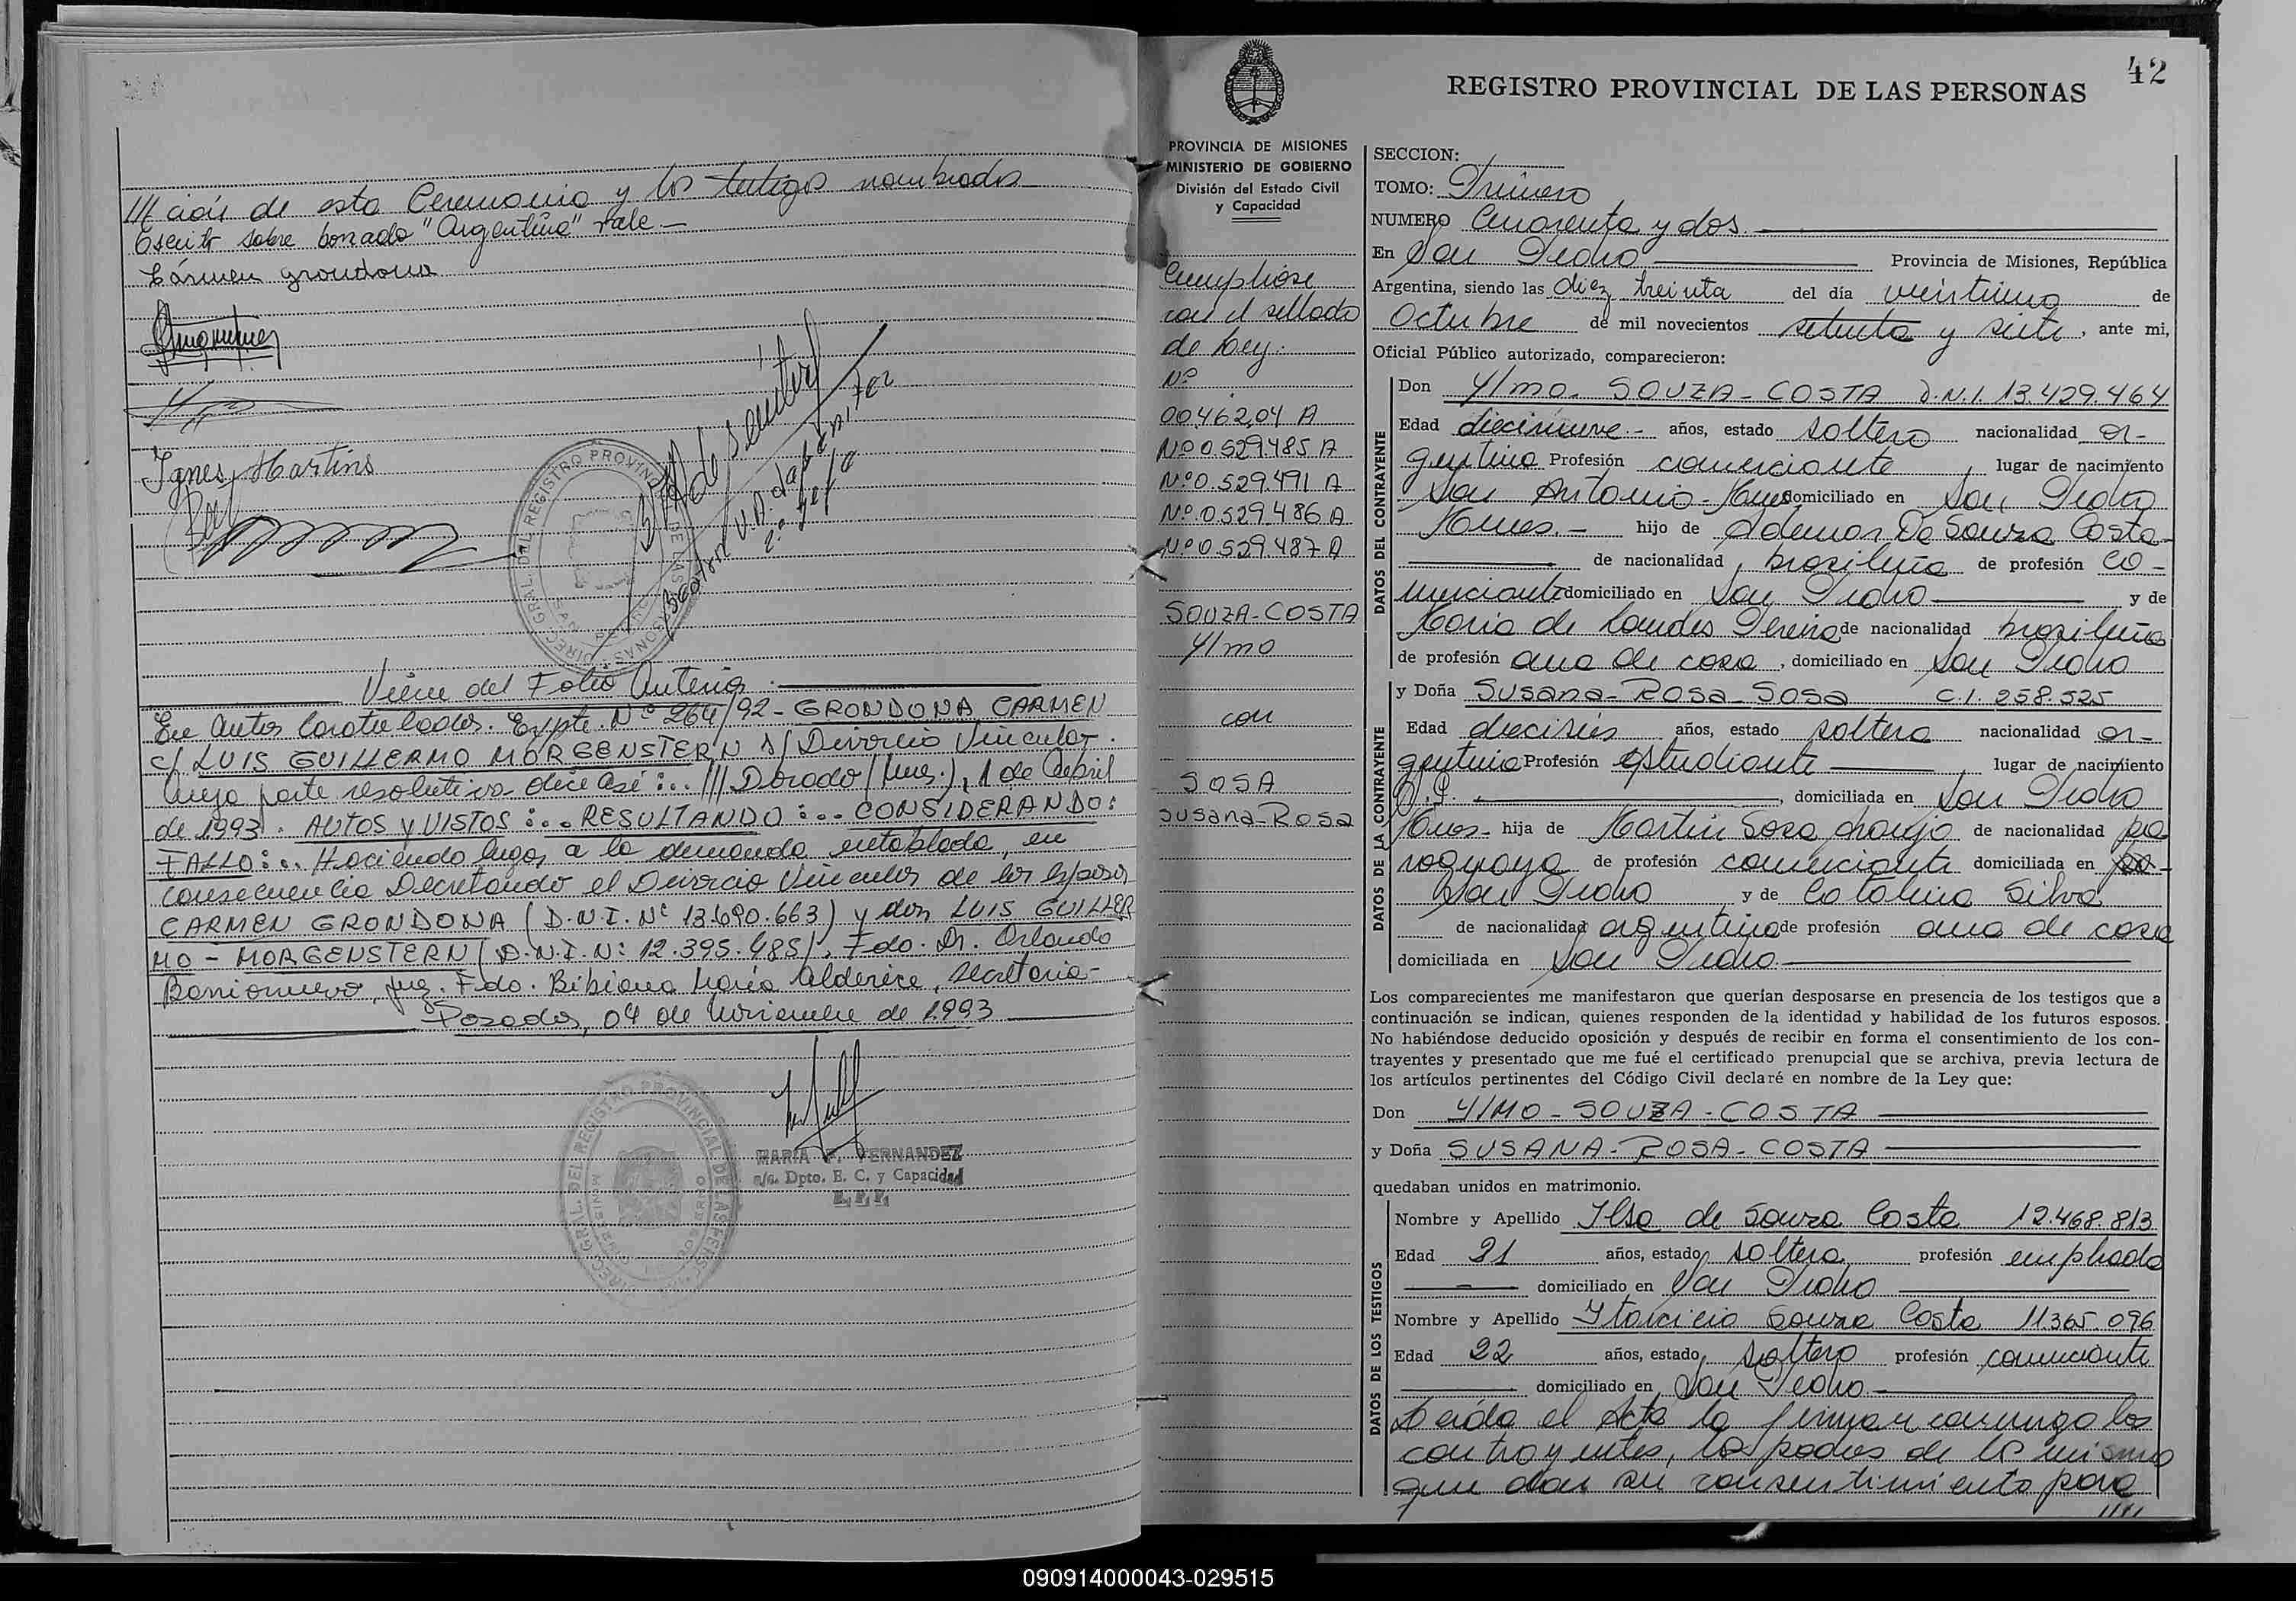 /// ción de esta Ceremonia y los testigos nombrados
Escrito sobre borrado "Argentina" vale —
Cármen grondona
Ignes Martins
Viene del Folio Anterior.
En Autos Caratulados. Expte. Nº 264/92 - GRONDONA CARMEN
c/ LUIS GUILLERMO MORGENSTERN s/ Divorcio Vincular.
Cuya parte resolutiva dice así:... /// Dorado (Mnes.), 1 de Abril
de 1993. AUTOS y VISTOS:... RESULTANDO:... CONSIDERANDO:
FALLO:... Haciendo lugar a la demanda entablada, en
consecuencia Decretando el Divorcio Vincular de los esposos
CARMEN GRONDONA (D.N.I. Nº 13.690.663) y don LUIS GUILLER
MO - MORGENSTERN (D.N.I. N: 12.395.485). Fdo. Dr. Orlando
Barrionuevo, Juez. Fdo. Bibiana María Alderice, Secretaria-
Posadas, 04 de Noviembre de 1993
MARIA F. FERNANDEZ
a/c. Dpto. E. C. y Capacidad
R. P. P.
42
REGISTRO PROVINCIAL DE LAS PERSONAS
PROVINCIA DE MISIONES
MINISTERIO DE GOBIERNO
División del Estado Civil
y Capacidad
Cumplióse
con el sellado
de Ley.
Nº
00.462.04 A
Nº 0.529.485 A
Nº 0.529.491 A
Nº 0.529.486 A
Nº 0.529.487 A
SOUZA-COSTA
Ylmo
con
SOSA
Susana-Rosa
SECCION:
TOMO: Primero
NUMERO Cuarenta y dos.
En San Pedro Provincia de Misiones, República
Argentina, siendo las diez treinta del día veintiuno de
Octubre de mil novecientos setenta y siete, ante mi,
Oficial Público autorizado, comparecieron:
DATOS DEL CONTRAYENTE
Don Ylmo. SOUZA-COSTA D.N.I. 13.429.464
Edad diecinueve.- años, estado soltero nacionalidad ar-
gentina Profesión comerciante, lugar de nacimiento
San Antonio-Mnes domiciliado en San Pedro
Mnes.- hijo de Ademar De Souza Costa
de nacionalidad brasileña de profesión co-
merciante domiciliado en San Pedro y de
Maria de Lourdes Pereira de nacionalidad brasileña
de profesión ama de casa, domiciliado en San Pedro
DATOS DE LA CONTRAYENTE
y Doña Susana-Rosa-Sosa C.I. 258.525
Edad dieciséis años, estado soltera nacionalidad ar-
gentina Profesión estudiante, lugar de nacimiento
S.P., domiciliada en San Pedro
Mnes- hija de Martin Sosa Araujo de nacionalidad pa
raguaya de profesión comerciante domiciliada en
San Pedro y de Catalina Silva
de nacionalidad argentina de profesión ama de casa
domiciliada en San Pedro.
Los comparecientes me manifestaron que querían desposarse en presencia de los testigos que a
continuación se indican, quienes responden de la identidad y habilidad de los futuros esposos.
No habiéndose deducido oposición y después de recibir en forma el consentimiento de los con-
trayentes y presentado que me fué el certificado prenupcial que se archiva, previa lectura de
los artículos pertinentes del Código Civil declaré en nombre de la Ley que:
Don YLMO-SOUZA-COSTA
y Doña SUSANA-ROSA-COSTA
quedaban unidos en matrimonio.
DATOS DE LOS TESTIGOS
Nombre y Apellido Ilsa de Souza Costa 12.468.813
Edad 21 años, estado soltera profesión empleada
domiciliado en San Pedro
Nombre y Apellido Ytarcicio Souza Costa 11.365.096
Edad 22 años, estado soltero profesión comerciante
domiciliado en San Pedro
Leída el Acta la firman conmigo los
contrayentes, los padres de la misma
que dan su consentimiento para
////
090914000043-029515